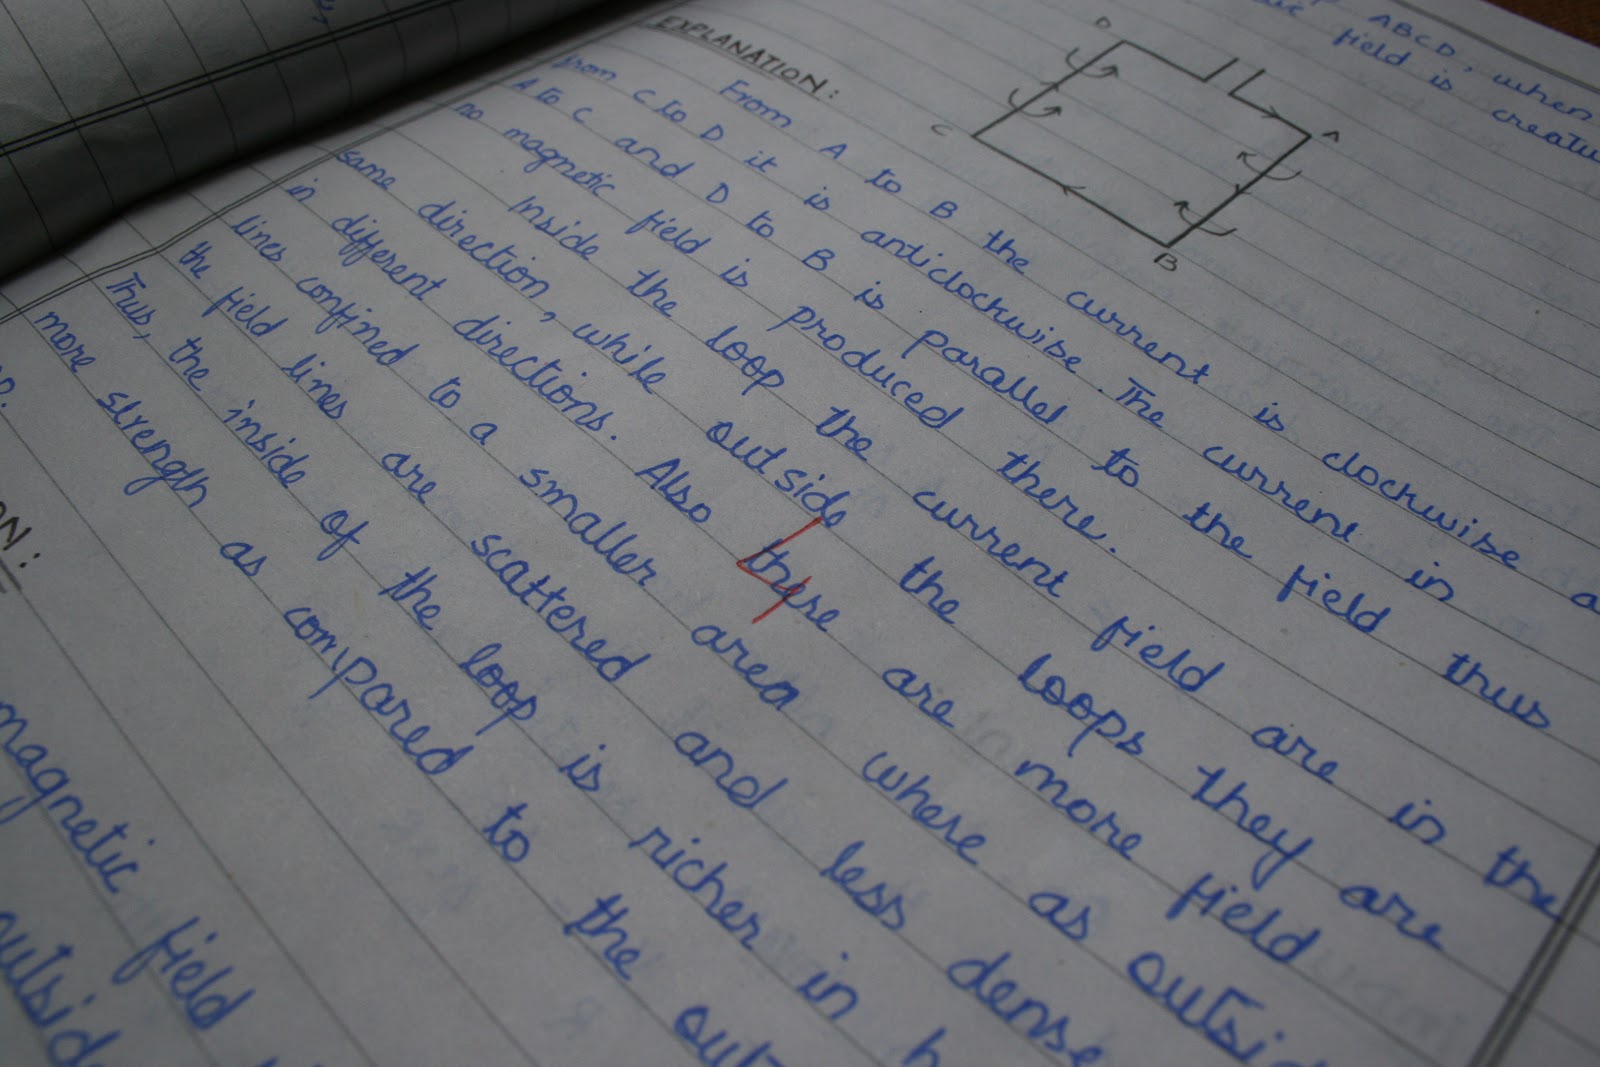 ABCD, when
field is create
D
A
C
B
EXPLANATION:
From A to B the current is clockwise a
from C to D it is anticlockwise. The current in
A to C and D to B is parallel to the field thus
no magnetic field is produced there.
Inside the loop the current field are in the
same direction, while outside the loops they are
in different directions. Also there are more field
lines confined to a smaller area where as outsid
the field lines are scattered and less dense
Thus, the inside of the loop is richer in
more strength as compared to the out
ON:
magnetic field
outsid